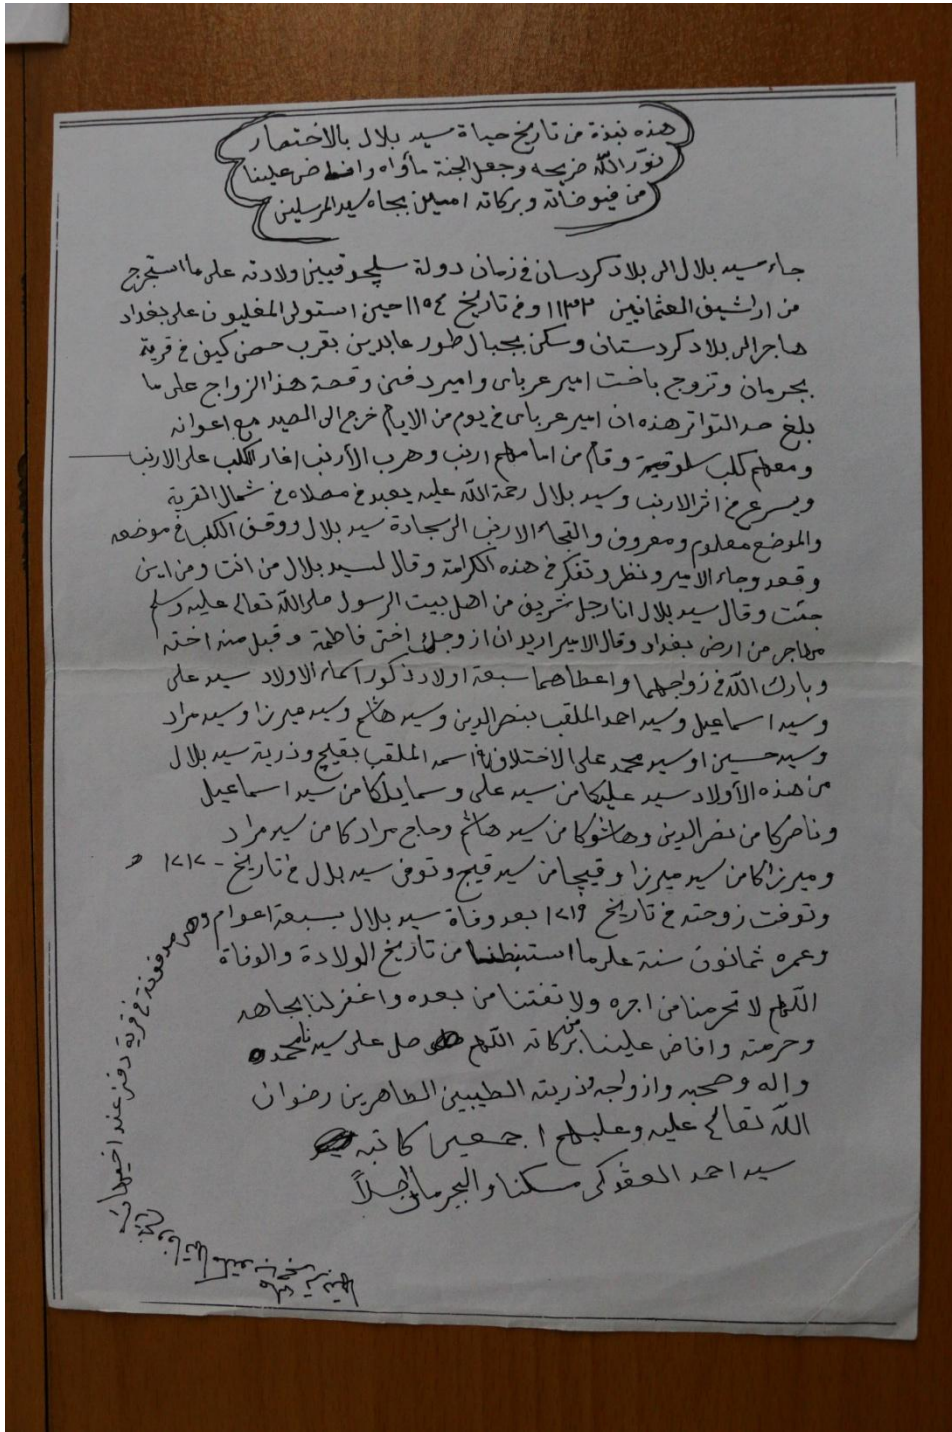 هذه نبذة من تاريخ حياة سيد بلال بالاختصار
نوّر اللّه ضريحه وجعل الجنة مأواه وافاض علينا
من فيوضاته وبركاته امين بجاه سيد المرسلين
جاء سيد بلال الى بلاد كردسان في زمان دولة سلچوقيين ولادته على ما استخرج
من ارشيف العثمانيين ١١٣٢ وفي تاريخ ١١٥٤ حين استولى المغليون على بغداد
هاجر الى بلاد كردستان وسكن بجبال طور عابدين بقرب حصن كيف في قرية
بجرمان وتزوج باخت امير عرباى وامير دفنى وقصة هذا الزواج على ما
بلغ حد التواتر هذه ان امير عرباى في يوم من الايام خرج الى الصيد مع اعوانه
ومعهم كلب سلوقية وقام من امامهم ارنب وهرب الأرنب اغار الكلب على الارنب
ويسرع في اثر الارنب وسيد بلال رحمة اللّه عليه يعبد في مصلاه في شمال القرية
والموضع معلوم ومعروف والتجاء الارنب الى سجادة سيد بلال ووقف الكلب في موضعه
وقعد وجاء الامير ونظر وتفكر في هذه الكرامة وقال لسيد بلال من انت ومن اين
جئت وقال سيد بلال انا رجل شريف من اهل بيت الرسول صلى اللّه تعالى عليه وسلم
مهاجر من ارض بغداد وقال الامير اريد ان ازوجك اختى فاطمة وقبل منه اخته
وبارك اللّه في زواجهما واعطاهما سبعة اولاد ذكور اسماء الاولاد سيد على
وسيد اسماعيل وسيد احمد الملقب بنصر الدين وسيد هاشم وسيد ميرزا وسيد مراد
وسيد حسين او سيد محمد على الاختلاف في اسمه الملقب بقليچ وذرية سيد بلال
من هذه الأولاد سيد عليكا من سيد على وسمايلكا من سيد اسماعيل
وناصركا من نصر الدين وهاشوكا من سيد هاشم وحاج مرادكا من سيد مراد
وميرزاكا من سيد ميرزا وقيچا من سيد قيچ وتوفى سيد بلال في تاريخ - ١٢١٢ ه
وتوفت زوجته في تاريخ ١٢١٩ بعد وفاة سيد بلال بسبعة اعوام وهى مدفونة في قرية دفنى عند اخيها
وعمره ثمانون سنة على ما استنبطنا من تاريخ الولادة والوفاة
اللّهم لا تحرمنا من اجره ولا تفتنا من بعده واغفر لنا بجاهه
وحرمته وافاض علينا من بركاته اللّهم صل على سيدنا محمد
واله وصحبه وازواجه وذريته الطيبين الطاهرين رضوان
اللّه تعالى عليه وعليهم اجمعين كاتبه
سيد احمد العڤوكى مسكنا والبجرمانى اصلاً